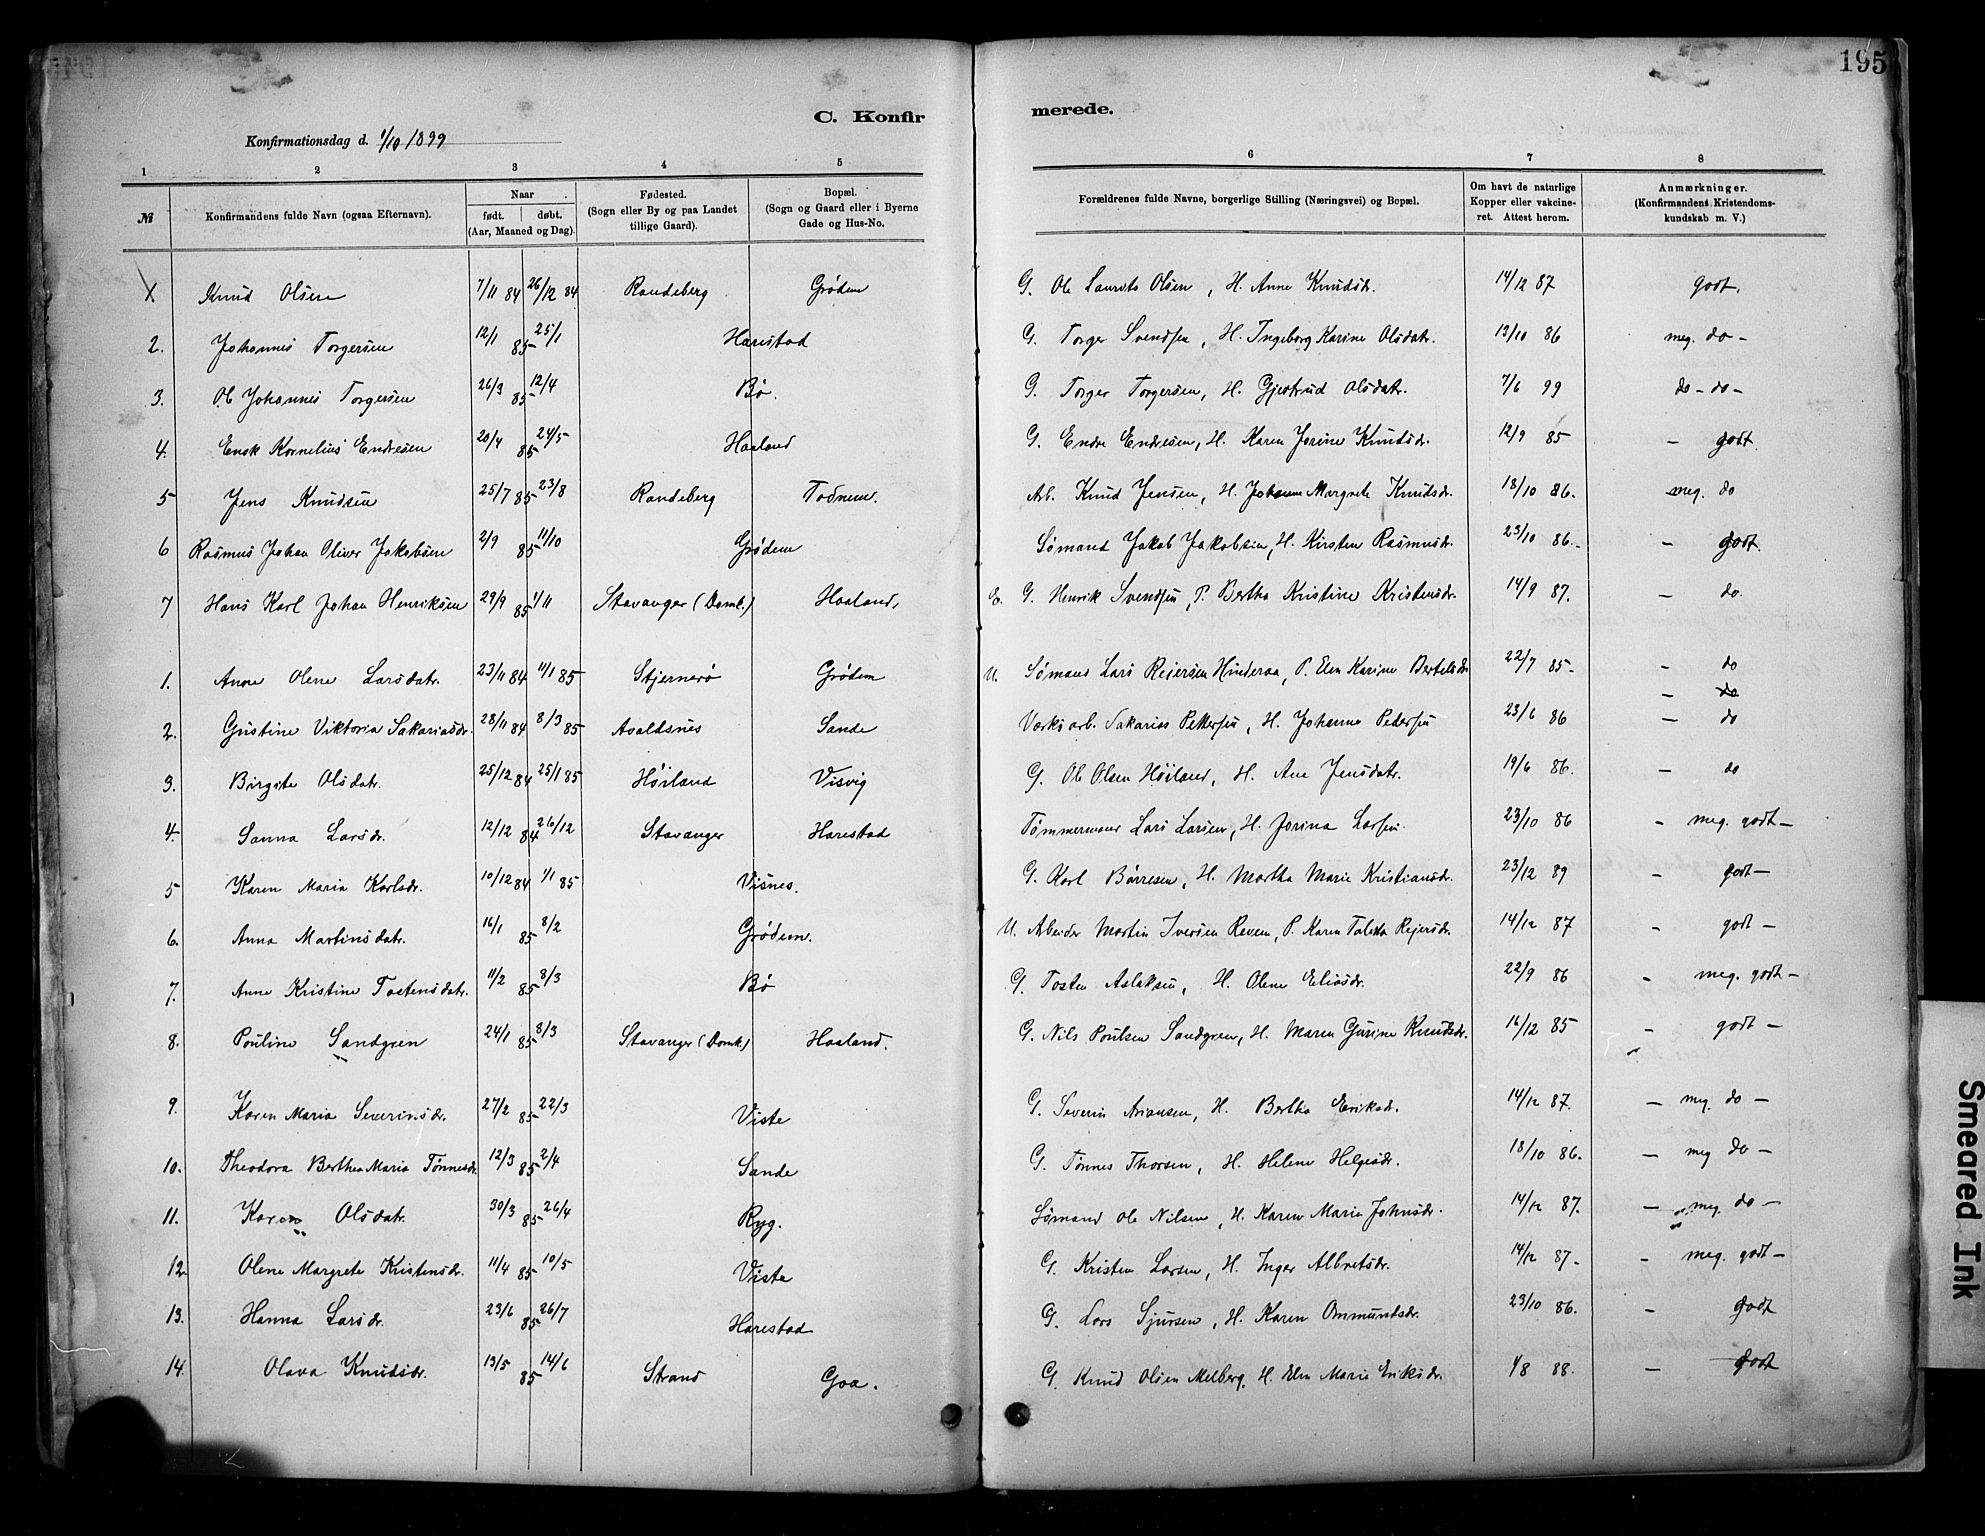 195
C. Konfirmerede.
Konfirmationsdag d. 1/10 1899
1 2 3 4 5 6 7 8
№ Konfirmandens fulde Navn (ogsaa Efternavn). Naar født. døbt. (Aar, Maaned og Dag). Fødested. (Sogn eller By og paa Landet tillige Gaard). Bopæl. (Sogn og Gaard eller i Byerne Gade og Hus-No. Forældrenes fulde Navne, borgerlige Stilling (Næringsvei) og Bopæl. Om havt de naturlige Kopper eller vakcineret. Attest herom. Anmærkninger. (Konfirmandens Kristendomskundskab m. V.)
1 Knud Olsen 7/11 84 26/12 84 Randeberg Grødem G. Ole Laurits Olsen, H. Anne Knudsdr. 14/12 87 godt.
2. Johannes Torgersen 12/1 85 25/1 Harestad G. Torger Svendsen, H. Ingeborg Karine Olsdatr. 12/10 86 meg. do –
3. Ole Johannes Torgersen 26/3 85 12/4 Bø. G. Torger Torgersen, H. Gjertrud Olsdatr. 7/6 99 do – do –
4. Enok Kornelius Endresen 20/4 85 24/5 Haaland G. Endre Endresen, H. Karen Jorine Knudsdr. 12/9 85 – godt.
5 Jens Knudsen 25/7 85 23/8 Randeberg Todnem. Arb. Knud Jensen, H. Johanne Margrete Knudsdr. 18/10 86. meg. do
6 Rasmus Johan Oliver Jakobsen 2/9 85 11/10 Grødem Sømand Jakob Jakobsen, H. Kirsten Rasmusdr. 23/10 86. – godt.
7 Hans Karl Johan Henriksen 29/9 85 1/11 Stavanger (Domk.) Haaland, E. G. Henrik Svendsen, P. Bertha Kristine Kristensdr. 14/9 87. – do.
1. Anne Olene Larsdatr. 23/11 84 11/1 85 Stjernerø Grødem U. Sømand Lars Reiersen Hinderaa, P. Elen Karine Bertelsdr. 22/7 85 – – do
– do
2. Gustine Viktoria Sakariasdr. 28/11 84 8/3 85 Avaldsnes Sande Værksarb. Sakarias Pettersen, H. Johanne Pedersen 23/6 86 – do
3. Birgite Olsdatr. 25/12 84 25/1 85 Høiland Visvig G. Ole Olsen Høiland, H. Ane Jensdatr. 19/6 86. – do
4. Sanna Larsdr. 12/12 84 26/12 Stavanger Harestad Tømmermand Lars Larsen, H. Jorina Larsen. 23/10 86 – meg. godt –
5 Karen Maria Karlsdr. 10/12 84 1/1 85 Visnes. G. Karl Børresen, H. Martha Marie Kristiansdr. 23/12 89 – godt –
6. Anna Martinsdatr. 16/1 85 8/2 Grødem. U. Arbeider Martin Iversen Reven, P. Karen Reiersdr. 14/12 87 – godt –
7. Anne Kristine Tostensdatr. 11/2 85 8/3 Bø G. Tosten Aslaksen, H. Olene Eliasdr. 22/9 86 – meg. godt –
8. Pouline Sandgren 24/1 85 8/3 Stavanger (Domk.) Haaland. G. Nils Poulsen Sandgren, H. Maren Gurine Knudsdr. 16/12 85 – godt –
9. Karen Maria Severinsdr. 27/2 85 22/3 Viste G. Severin Ariansen, H. Bertha Eriksdr. 14/12 87. – meg. do –
10. Theodora Berthea Maria Tønnesdr. 12/3 85 2/4 Sande G. Tønnes Thorsen, H. Helene Helgesdr. 18/10 86. – meg do –
11. Karen Olsdatr. 30/3 85 26/4 Ryg. Sømand Ole Nilsen, H. Karen Marie Johnsdr. 14/12 87. – meg. do –
12. Olene Margrete Kristensdr. 11/4 85 10/5 Viste G. Kristen Larsen, H. Inger Albretsdr. 14/12 87. – meg. godt –
13. Hanna Larsdr. 23/6 85 26/7 Harestad G. Lars Sjursen, H. Karen Ommundsdr. 23/10 86. – godt
14. Olava Knudsdr. 13/5 85 14/6 Strand Goa. G. Knud Olsen Melberg, H. Elen Marie Eriksdr. 1/8 88. – godt
Smeared Ink